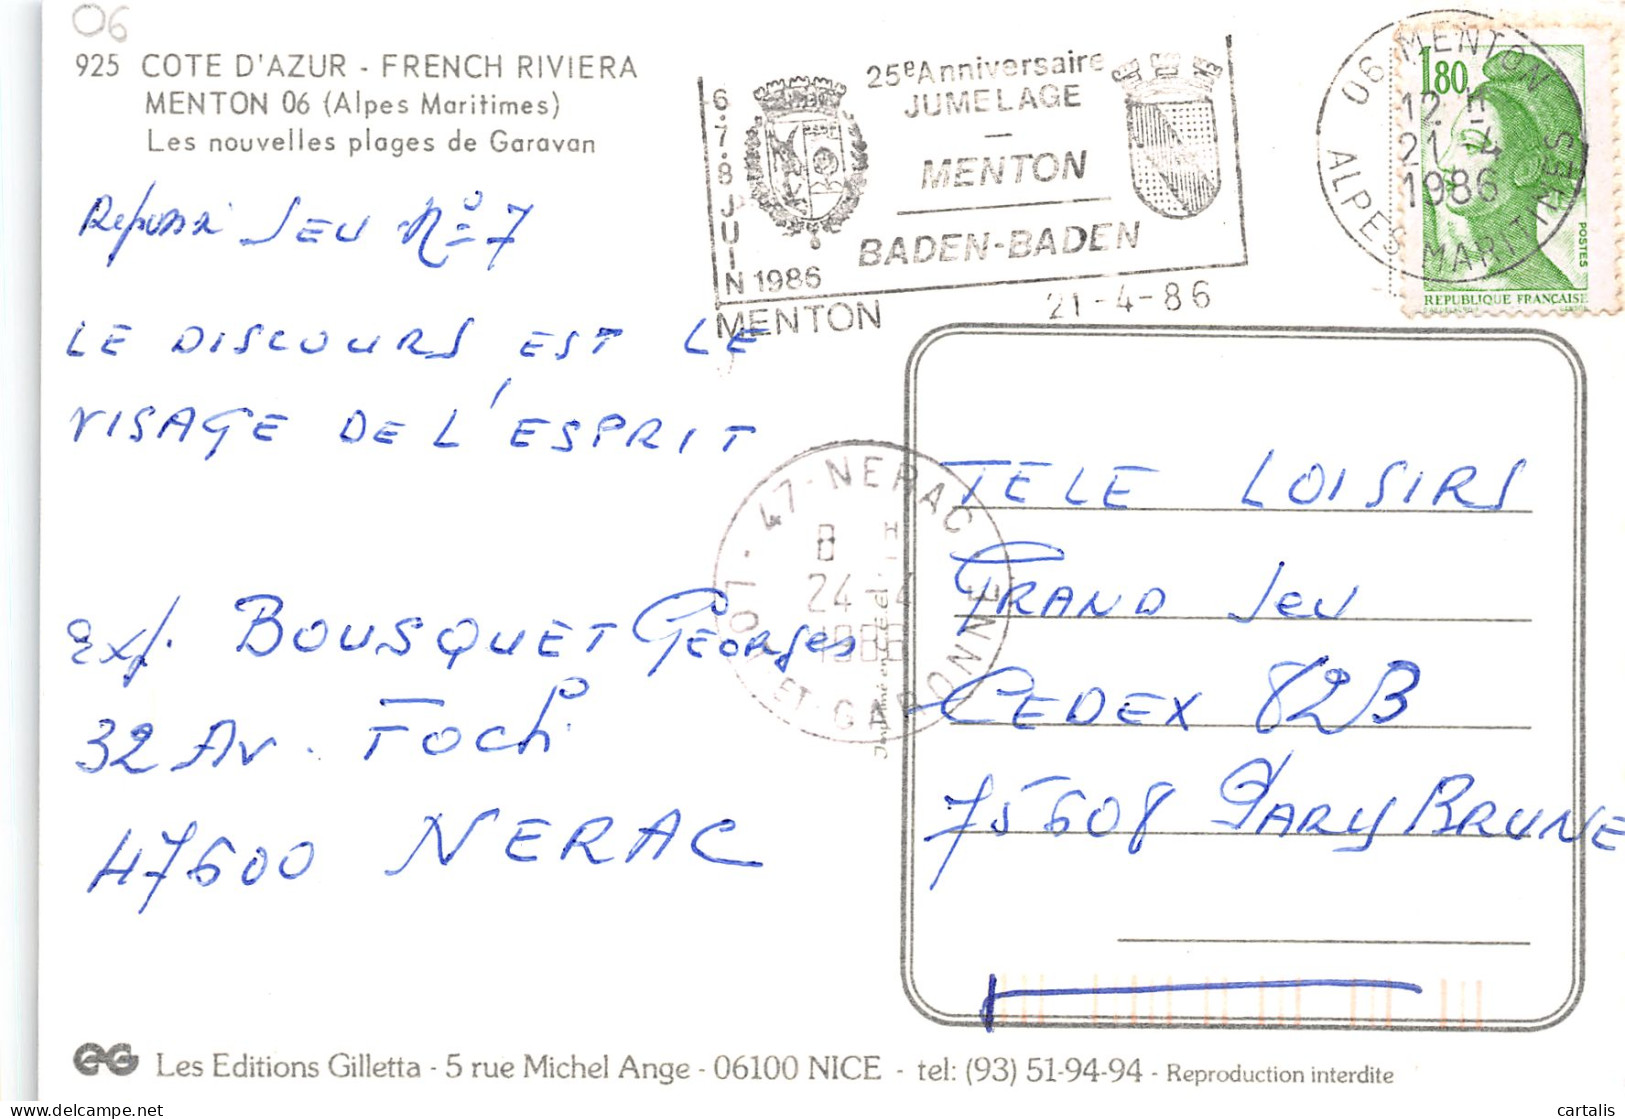 06
925 COTE D'AZUR - FRENCH RIVIERA
MENTON 06 (Alpes Maritimes)
Les nouvelles plages de Garavan
6.7.8 JUIN 1986
25e Anniversaire
JUMELAGE
—
MENTON
BADEN-BADEN
MENTON
21-4-86
06 MENTON
12 H
21-4
1986
ALPES MARITIMES
1,80
POSTES
REPUBLIQUE FRANCAISE
Reponse JEU N° 7
LE DISCOURS EST LE
VISAGE DE L'ESPRIT
Exp. BOUSQUET Georges
32 Av. Foch
47600 NERAC
47-NERAC
8 H
24-4
1986
LOT-ET-GARONNE
TELE LOISIRS
GRAND JEU
CEDEX 82B
75608 PARY BRUNE
Les Editions Gilletta - 5 rue Michel Ange - 06100 NICE - tel: (93) 51-94-94 - Reproduction interdite
cartalis